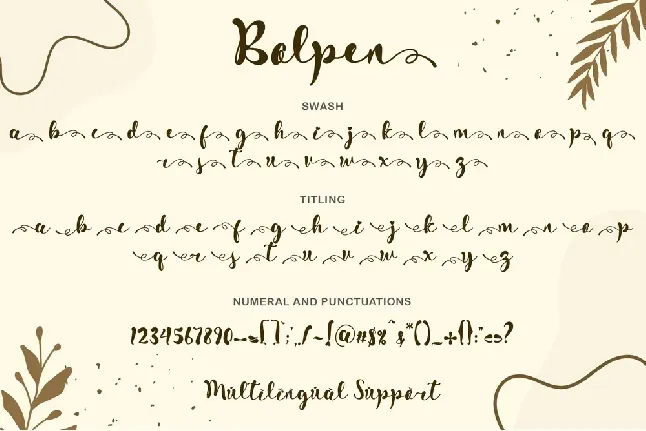 Bolpen
SWASH
a b c d e f g h i j k l m n o p q
r s t u v w x y z
TITLING
a b c d e f g h i j k l m n o p
q r s t u v w x y z
NUMERAL AND PUNCTUATIONS
1234567890 @#$%^&*()_+{}:"<>?
Multilingual Support